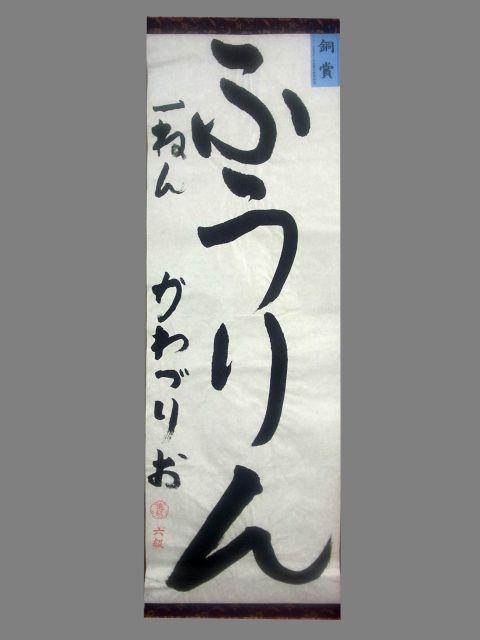 銅賞
ふうりん
一ねん
かわづりお
六級